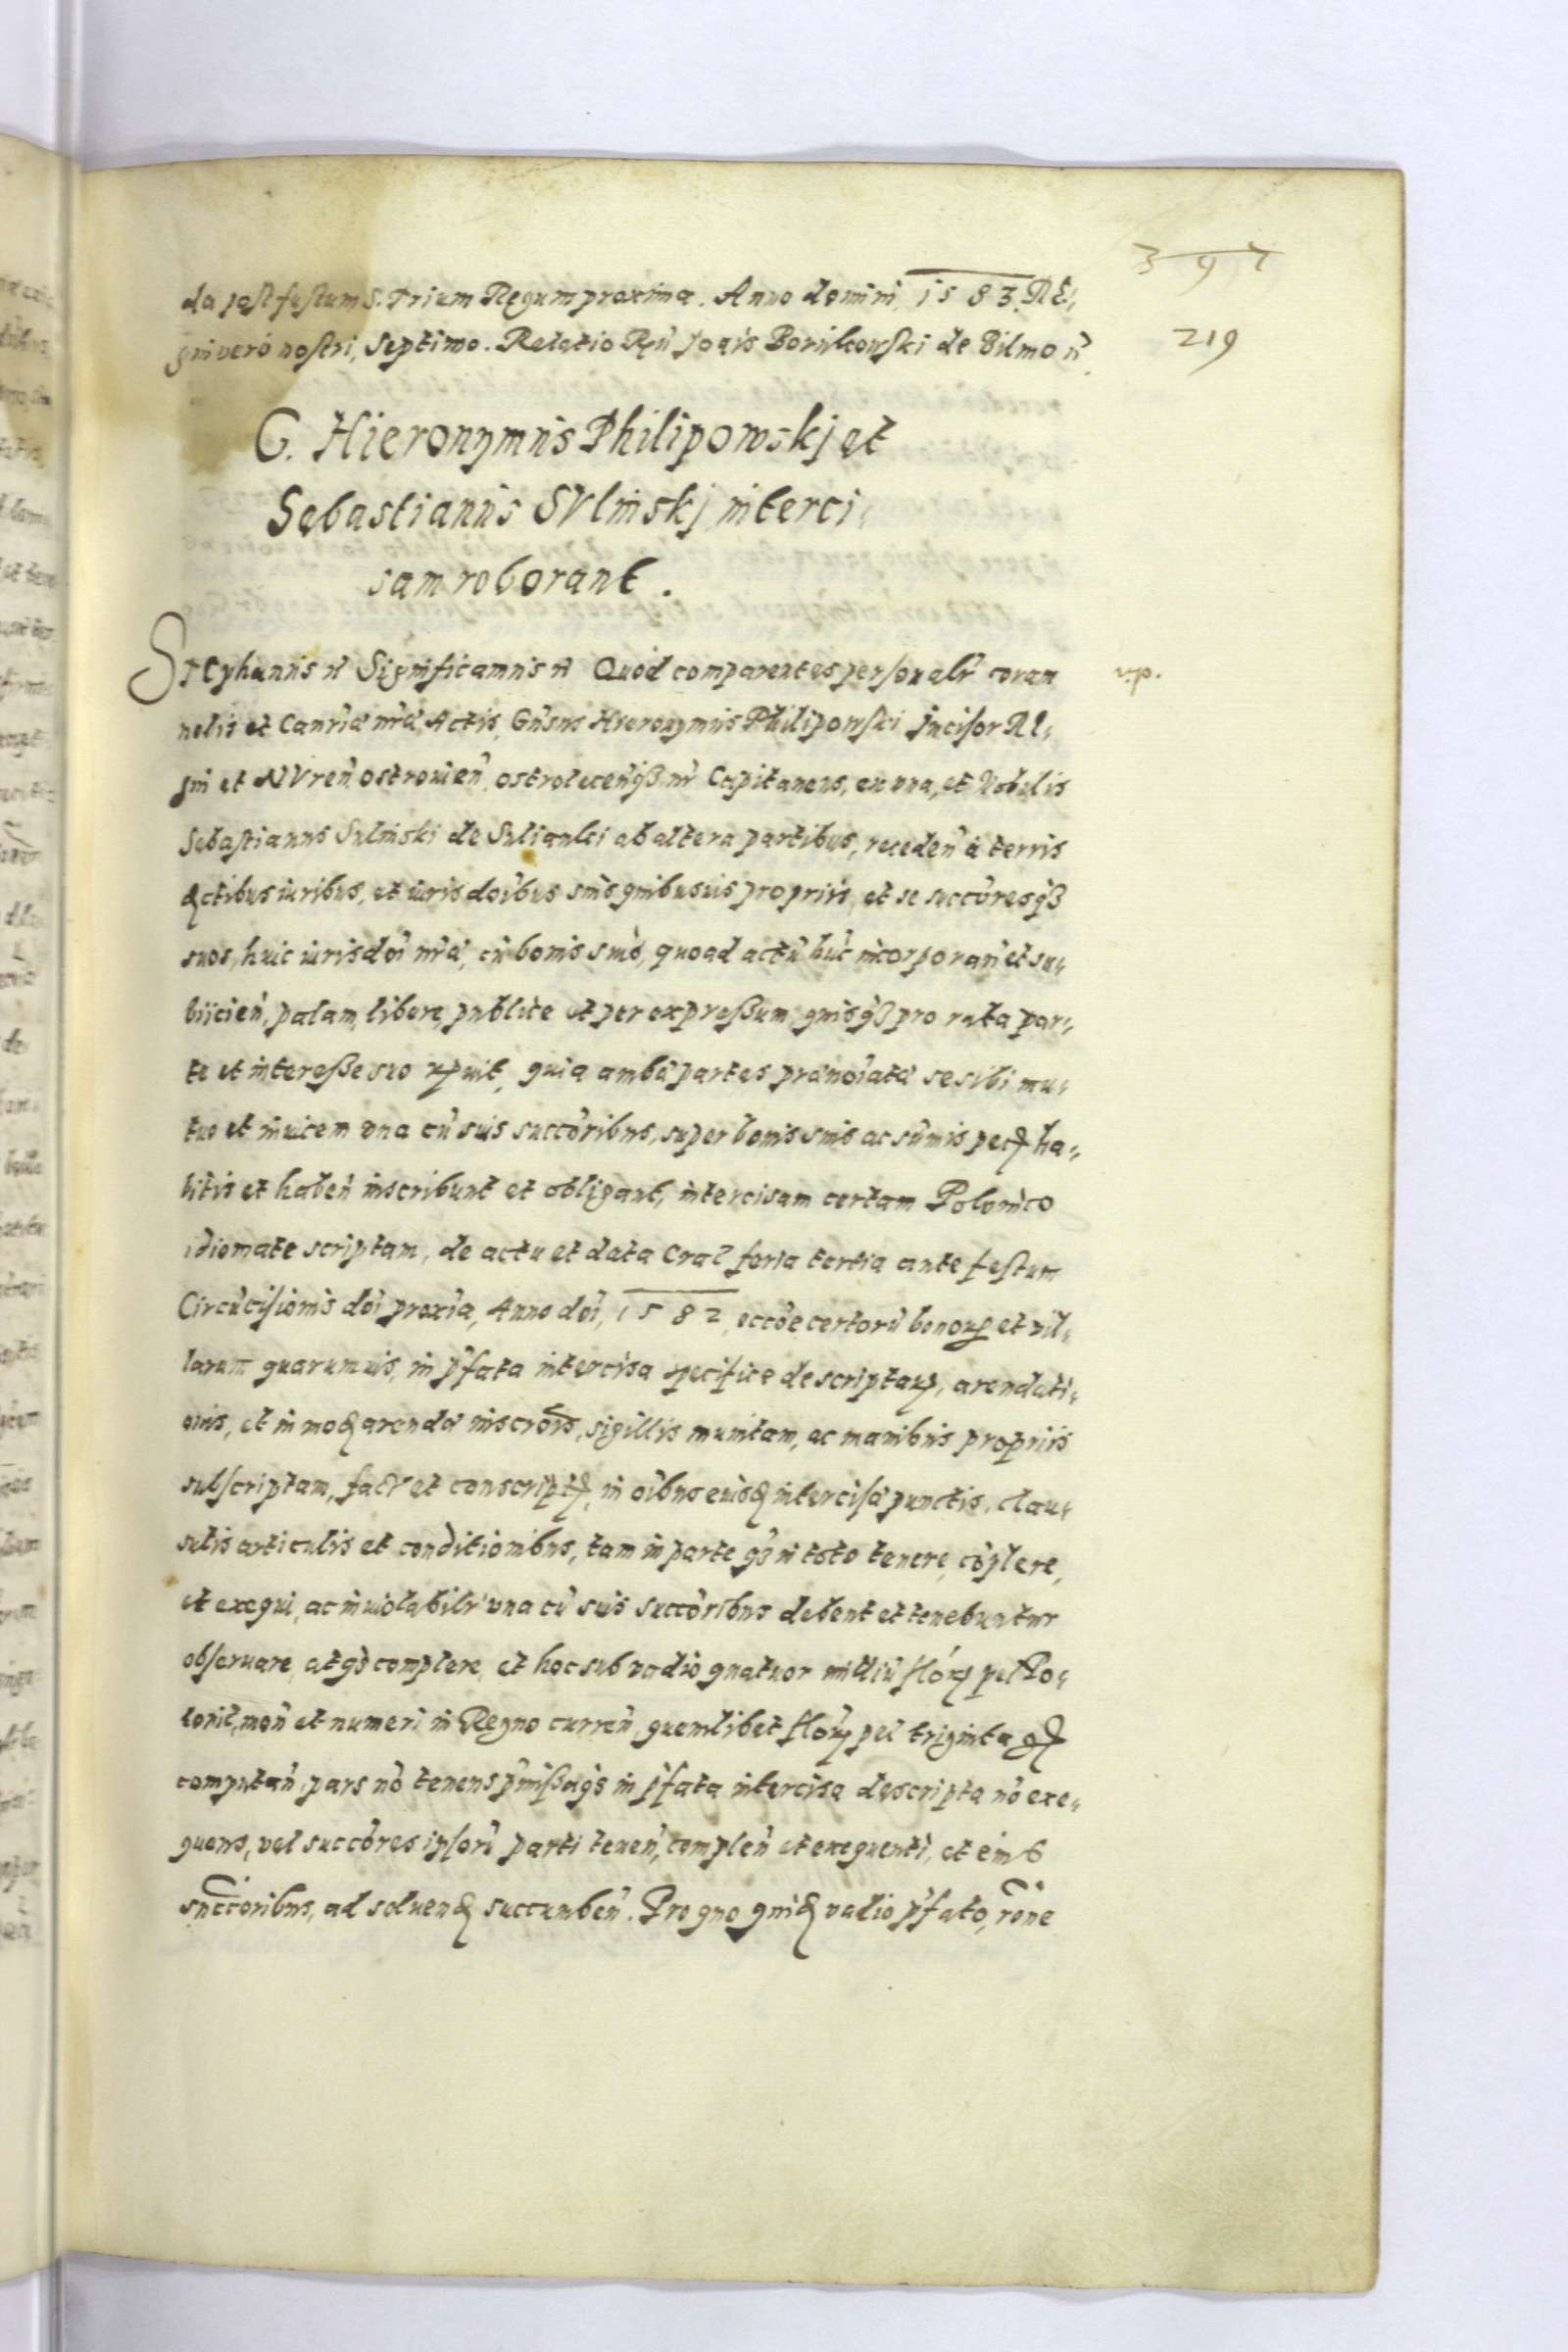 397
da post festum S. Trium Regum proxima. Anno domini, 1583. RE,
gni vero nostri, septimo. Relatio Rṇ̃ Joãis Borukowski de Bilmoñ
219
G. Hieronymus Philipowskj et
Sebastianus SVlinskj interci,
sam roborant.
STephanus ꝛč Significamus ꝛč Quod comparentes personalr̃ coram
v.p.
nobis et Canr̃ia nr̃a Actis, Gñsus Hieronymus Philipowski Incisor Re,
gni et NVreñ ostrouieñ ostrolecenqꝫ nr̃ Capitaneus, ex vna, et Nobilis
Sebastianus Sulinski de Suliankj ab altera partibus, recedeñ à terris
dictibus iuribus, et iurisdoĩbus suis quibusuis proprijs, et se succõresqꝫ
suos, huic iurisdoĩ nr̃æ, cũ bonis suis, quoad actũ hũc incorporañ et su,
biicieñ, palam, libere, publice et per expreßum, quisqꝫ pro rata par,
te et intereße suo rp̃uit, quia ambæ partes prænoĩatæ se sibi mu,
tuo et inuicem vna cũ suis succõribus, super bonis suis ac sũmis pecꝭ ha,
bitis et habeñ inscribunt et obligant, intercisam certam Polonico
idiomate scriptam, de actu et data Crac̃ feria tertia ante festum
Circũcisionis doĩ proxĩa, Anno doĩ, 1582, occõe certorũ bonorꝝ et vil,
larum quarumuis, in p̃fata intercisa specifice descriptarꝝ, arendati,
onis, et in modꝭ arendæ inscrõis, sigillis munitam, ac manibus proprijs
subscriptam, fact̃ et conscriptꝭ, in oĩbus eiusdꝭ intercisæ punctis, clau,
sulis articulis et conditionibus, tam in parte qꝫ in toto tenere, cõplere,
et exequi, ac inuiolabilr̃ vna cũ suis succõribus debent et tenebuntur
obseruare, atqꝫ complere, et hoc sub vadio quatuor milliũ flõrꝝ pec̃ Po,
lonic̃, moñ et numeri in Regno curreñ, quemlibet flõrꝝ per triginta gꝭ
computañ, pars nõ tenens p̃mißaqꝫ in p̃fata intercisa descripta nõ exe,
quens, vel succõres ipsorũ parti teneñ, compleñ et exequenti, et eius
succõribus, ad soluendꝭ succumbeñ. Pro quo quidꝭ vadio p̃fato, rõne